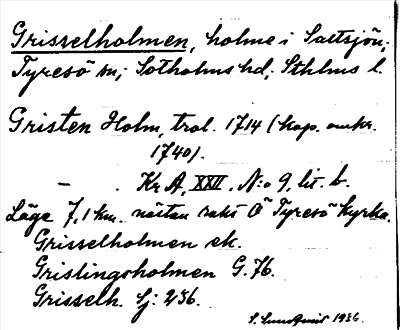 Grisselholmen, holme i Saltsjön;
Tyresö sn; Sotholms hd; Sthlms l.
Gristen Holm, trol. 1714 (kop. omkr.
1740).
— . Kr A, XXII, N:o 9, lit. b.
Läge 7,1 km. nästan rakt Ö Tyresö kyrka.
Grisselholmen ek.
Grislingsholmen G. 76.
Grisselh. Sj: 236.
1936